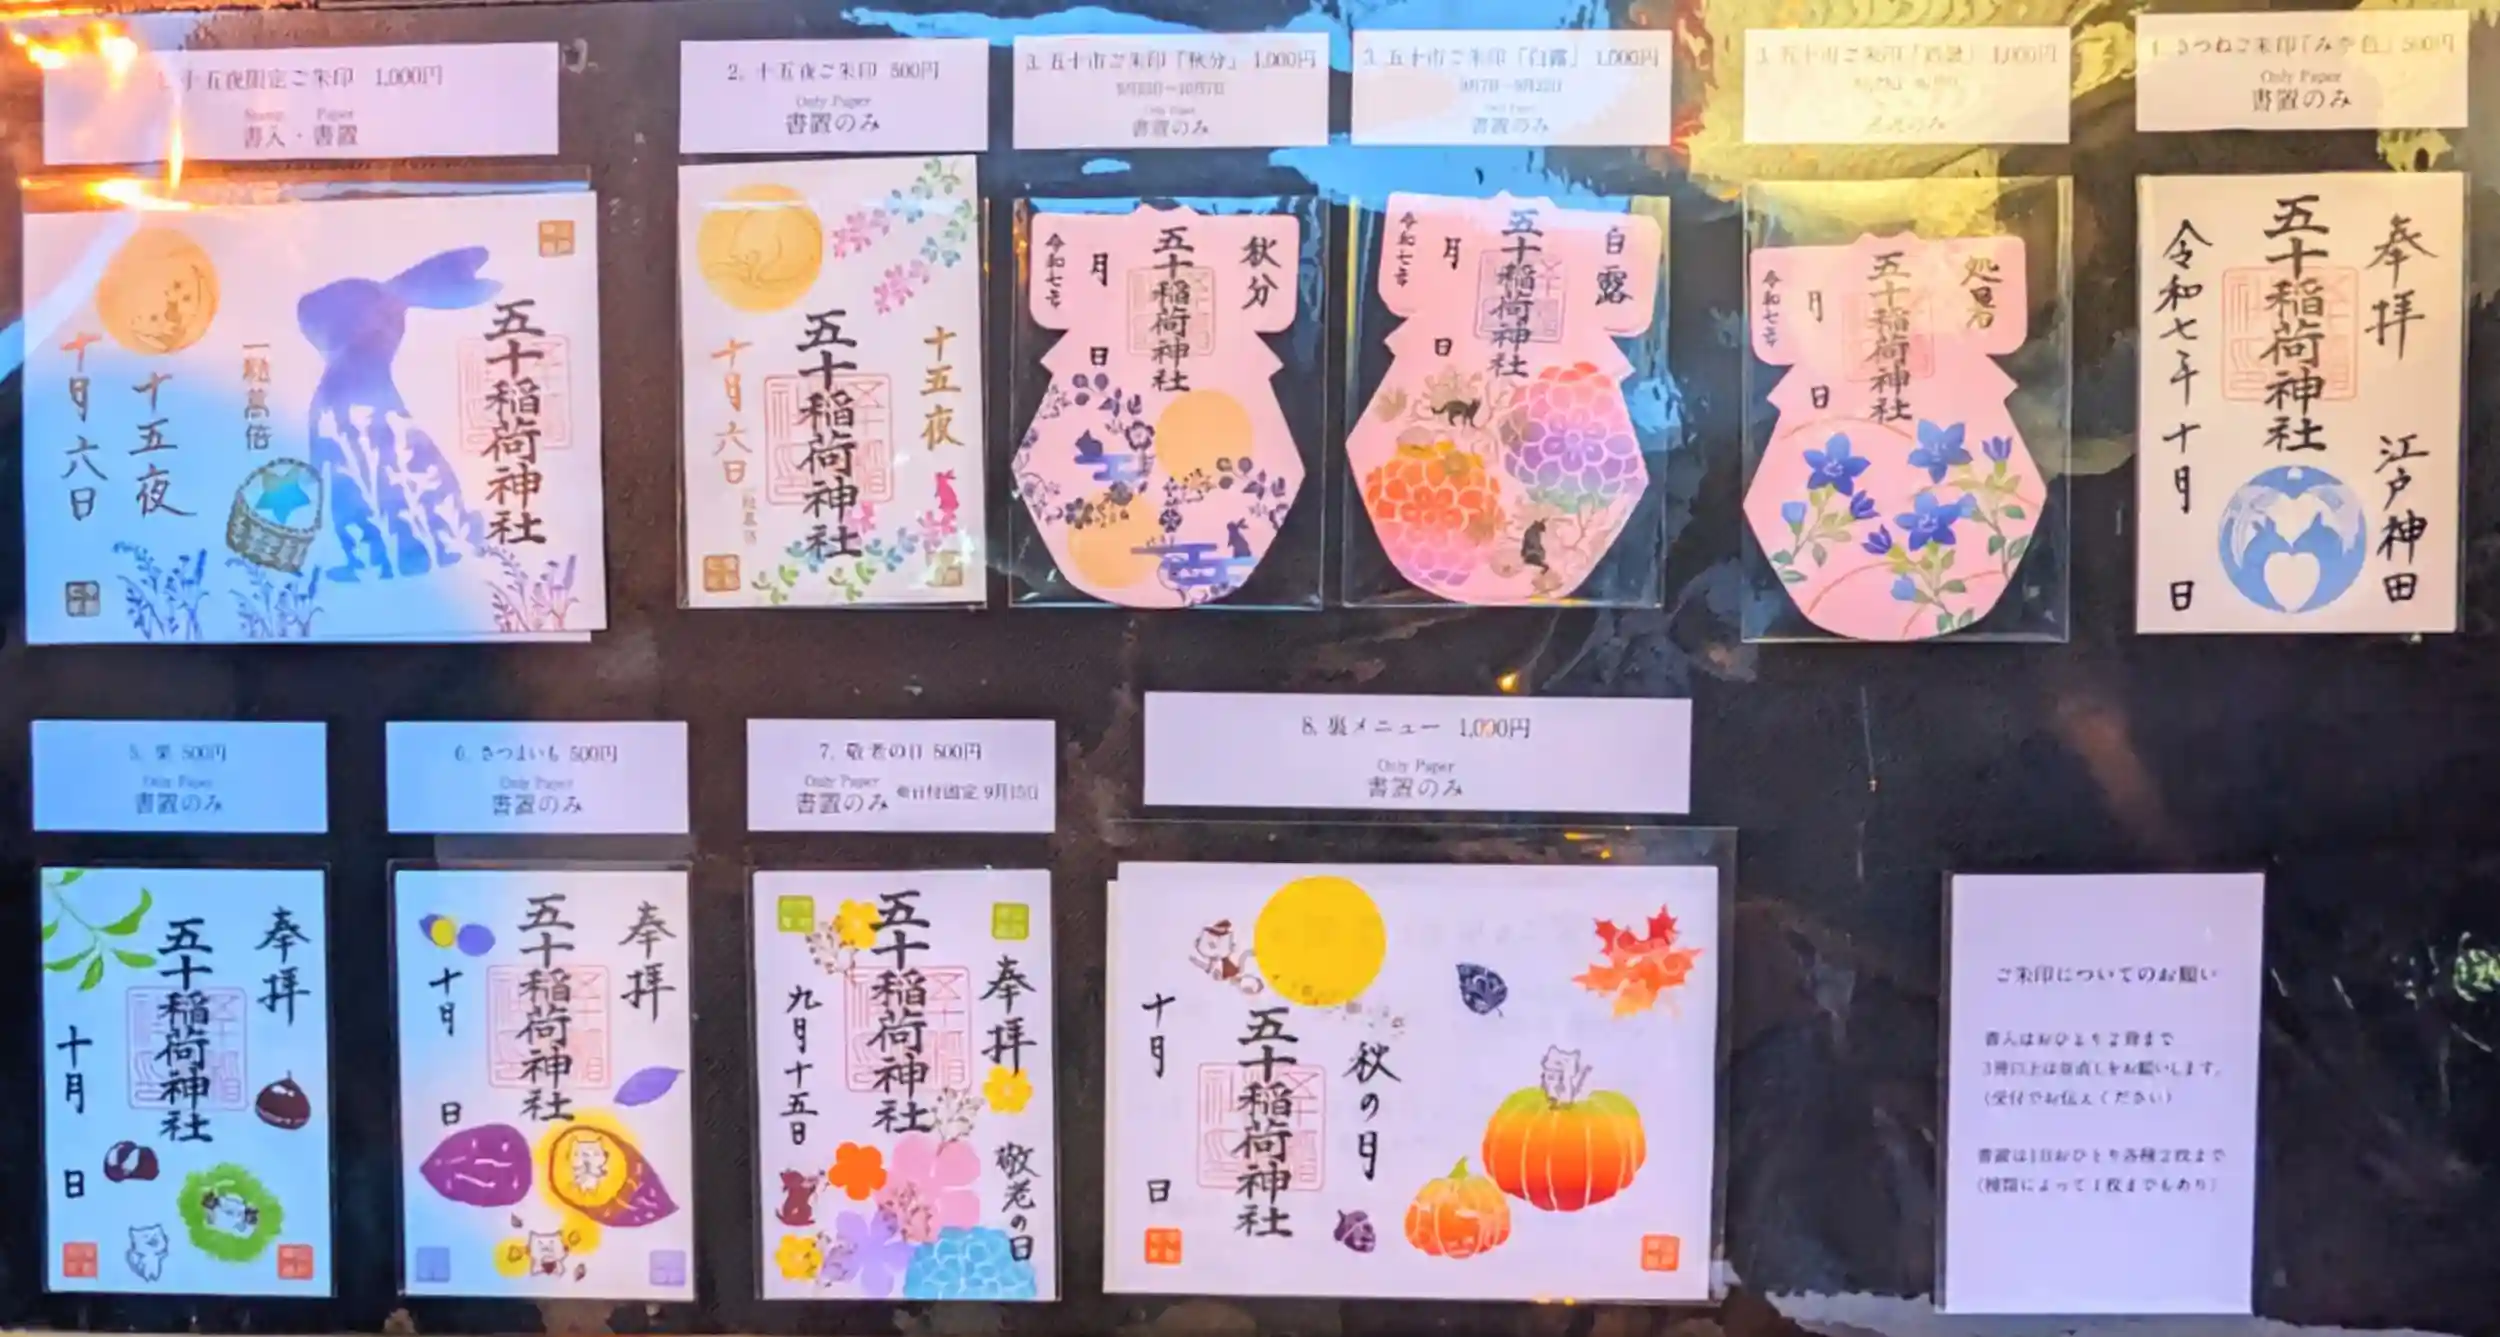 十五夜限定ご朱印 1,000円
Stamp Paper
書入・書置
2. 十五夜ご朱印 500円
Only Paper
書置のみ
3. 五十市ご朱印「秋分」 1,000円
Only Paper
書置のみ
3. 五十市ご朱印「白露」 1,000円
9月7日～9月22日
Only Paper
書置のみ
3. 五十市ご朱印「処暑」 1,000円
書置のみ
きつねご朱印「みずいろ」 500円
Only Paper
書置のみ
五十稲荷神社
一粒萬倍
十五夜
十月六日
十五夜
五十稲荷神社
十月六日
秋分
五十稲荷神社
月 日
令和七年
白露
五十稲荷神社
月 日
令和七年
処暑
五十稲荷神社
月 日
令和七年
奉拝 江戸神田
五十稲荷神社
令和七年十月 日
5. 栗 500円
Only Paper
書置のみ
6. さつまいも 500円
Only Paper
書置のみ
7. 敬老の日 500円
Only Paper
書置のみ ※日付固定 9月15日
8. 裏メニュー 1,000円
Only Paper
書置のみ
奉拝
五十稲荷神社
十月 日
奉拝
五十稲荷神社
十月 日
奉拝 敬老の日
五十稲荷神社
九月十五日
秋の月
五十稲荷神社
十月 日
ご朱印についてのお願い
書入はおひとり2冊まで
3冊以上は並直しをお願いします。
(受付でお伝えください)
書置は1日おひとり各種2枚まで
(種類によって1枚までもあり)